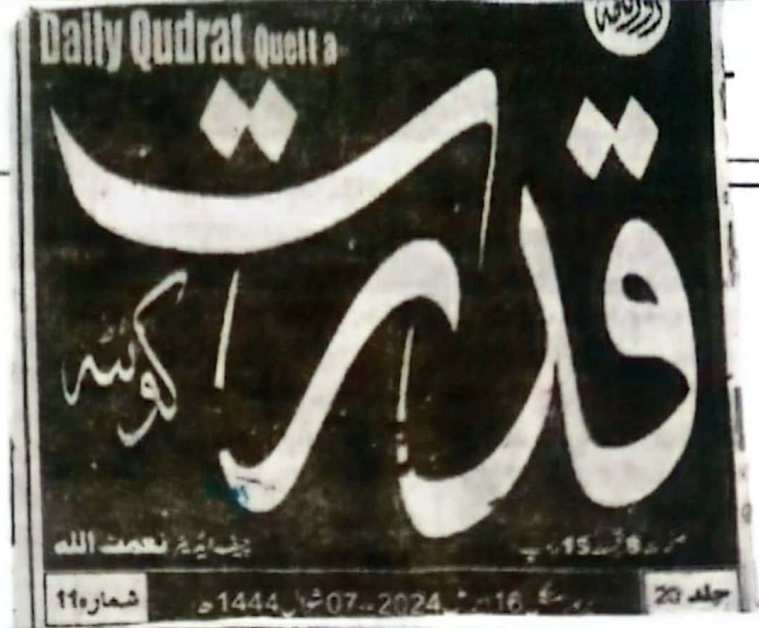 Daily Qudrat Quetta
روزنامہ
قدرت
کوئٹہ
صفحات 8 قیمت 15 روپے
چیف ایڈیٹر نعمت اللہ
جلد 20
16 2024 07 شوال 1444ھ
شمارہ 11